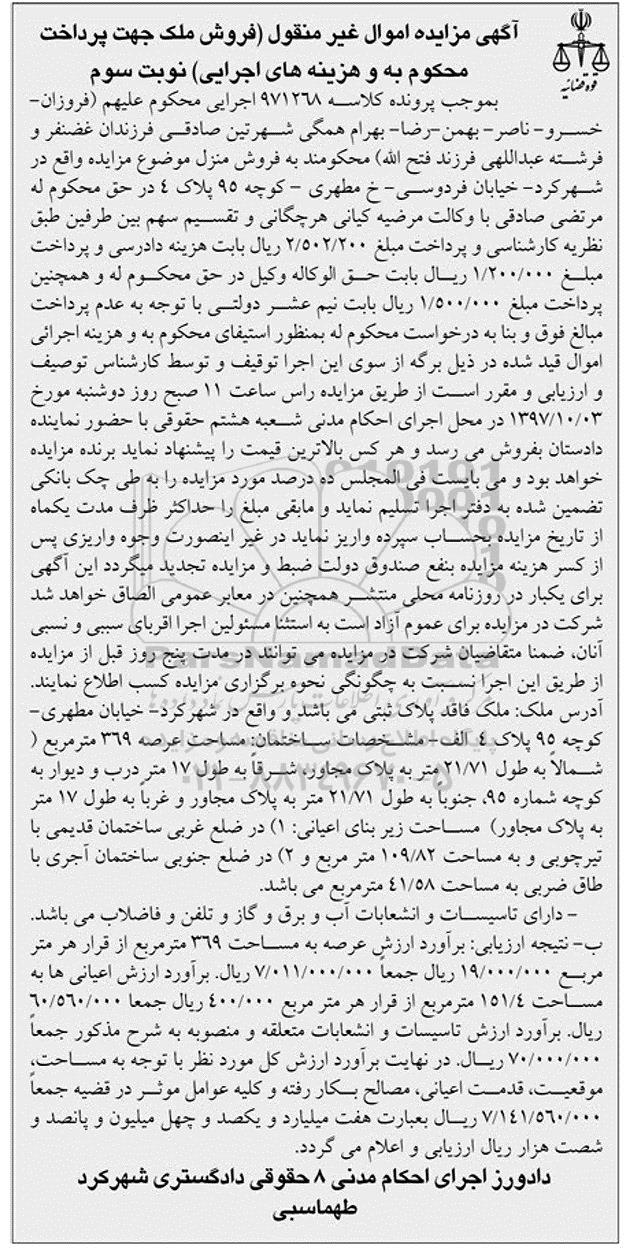 آگهی مزایده اموال غیر منقول (فروش ملک جهت پرداخت
محکوم به و هزینه های اجرایی) نوبت سوم
قوه قضائیه
بموجب پرونده کلاسه ۹۷۱۲۶۸ اجرایی محکوم علیهم (فروزان-
خسرو- ناصر- بهمن-رضا- بهرام همگی شهرتین صادقی فرزندان غضنفر و
فرشته عبداللهی فرزند فتح الله) محکومند به فروش منزل موضوع مزایده واقع در
شهرکرد- خیابان فردوسی- خ مطهری - کوچه ۹۵ پلاک ۴ در حق محکوم له
مرتضی صادقی با وکالت مرضیه کیانی هرچگانی و تقسیم سهم بین طرفین طبق
نظریه کارشناسی و پرداخت مبلغ ۲/۵۰۲/۲۰۰ ریال بابت هزینه دادرسی و پرداخت
مبلغ ۱/۲۰۰/۰۰۰ ریال بابت حق الوکاله وکیل در حق محکوم له و همچنین
پرداخت مبلغ ۱/۵۰۰/۰۰۰ ریال بابت نیم عشر دولتی با توجه به عدم پرداخت
مبالغ فوق و بنا به درخواست محکوم له بمنظور استیفای محکوم به و هزینه اجرائی
اموال قید شده در ذیل برگه از سوی این اجرا توقیف و توسط کارشناس توصیف
و ارزیابی و مقرر است از طریق مزایده راس ساعت ۱۱ صبح روز دوشنبه مورخ
۱۳۹۷/۱۰/۰۳ در محل اجرای احکام مدنی شعبه هشتم حقوقی با حضور نماینده
دادستان بفروش می رسد و هر کس بالاترین قیمت را پیشنهاد نماید برنده مزایده
خواهد بود و می بایست فی المجلس ده درصد مورد مزایده را به طی چک بانکی
تضمین شده به دفتر اجرا تسلیم نماید و مابقی مبلغ را حداکثر ظرف مدت یکماه
از تاریخ مزایده بحساب سپرده واریز نماید در غیر اینصورت وجوه واریزی پس
از کسر هزینه مزایده بنفع صندوق دولت ضبط و مزایده تجدید میگردد این آگهی
برای یکبار در روزنامه محلی منتشر همچنین در معابر عمومی الصاق خواهد شد
شرکت در مزایده برای عموم آزاد است به استثنا مسئولین اجرا اقربای سببی و نسبی
آنان، ضمنا متقاضیان شرکت در مزایده می توانند در مدت پنج روز قبل از مزایده
از طریق این اجرا نسبت به چگونگی نحوه برگزاری مزایده کسب اطلاع نمایند.
آدرس ملک: ملک فاقد پلاک ثبتی می باشد و واقع در شهرکرد- خیابان مطهری-
کوچه ۹۵ پلاک ۴ الف- مشخصات ساختمان: مساحت عرصه ۳۶۹ مترمربع (
شمالاً به طول ۲۱/۷۱ متر به پلاک مجاور، شرقاً به طول ۱۷ متر درب و دیوار به
کوچه شماره ۹۵، جنوباً به طول ۲۱/۷۱ متر به پلاک مجاور و غرباً به طول ۱۷ متر
به پلاک مجاور) مساحت زیر بنای اعیانی: ۱) در ضلع غربی ساختمان قدیمی با
تیرچوبی و به مساحت ۱۰۹/۸۲ متر مربع و ۲) در ضلع جنوبی ساختمان آجری با
طاق ضربی به مساحت ۴۱/۵۸ مترمربع می باشد.
- دارای تاسیسات و انشعابات آب و برق و گاز و تلفن و فاضلاب می باشد.
ب- نتیجه ارزیابی: برآورد ارزش عرصه به مساحت ۳۶۹ مترمربع از قرار هر متر
مربع ۱۹/۰۰۰/۰۰۰ ریال جمعاً ۷/۰۱۱/۰۰۰/۰۰۰ ریال. برآورد ارزش اعیانی ها به
مساحت ۱۵۱/۴ مترمربع از قرار هر متر مربع ۴۰۰/۰۰۰ ریال جمعا ۶۰/۵۶۰/۰۰۰
ریال. برآورد ارزش تاسیسات و انشعابات متعلقه و منصوبه به شرح مذکور جمعاً
۷۰/۰۰۰/۰۰۰ ریال. در نهایت برآورد ارزش کل مورد نظر با توجه به مساحت،
موقعیت، قدمت اعیانی، مصالح بکار رفته و کلیه عوامل موثر در قضیه جمعاً
۷/۱۴۱/۵۶۰/۰۰۰ ریال بعبارت هفت میلیارد و یکصد و چهل میلیون و پانصد و
شصت هزار ریال ارزیابی و اعلام می گردد.
دادورز اجرای احکام مدنی ۸ حقوقی دادگستری شهرکرد
طهماسبی
ParsNamadData
۰۲۱-۸۸۳۴۹۶۷۰-۵